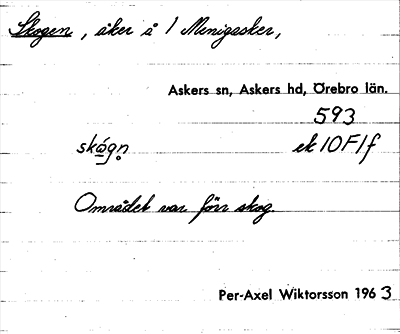 Skogen, åker å 1 Menigasker,
Askers sn, Askers hd, Örebro län.
593
skǿgn̥ ek 10F1f
Området var förr skog.
Per-Axel Wiktorsson 1963